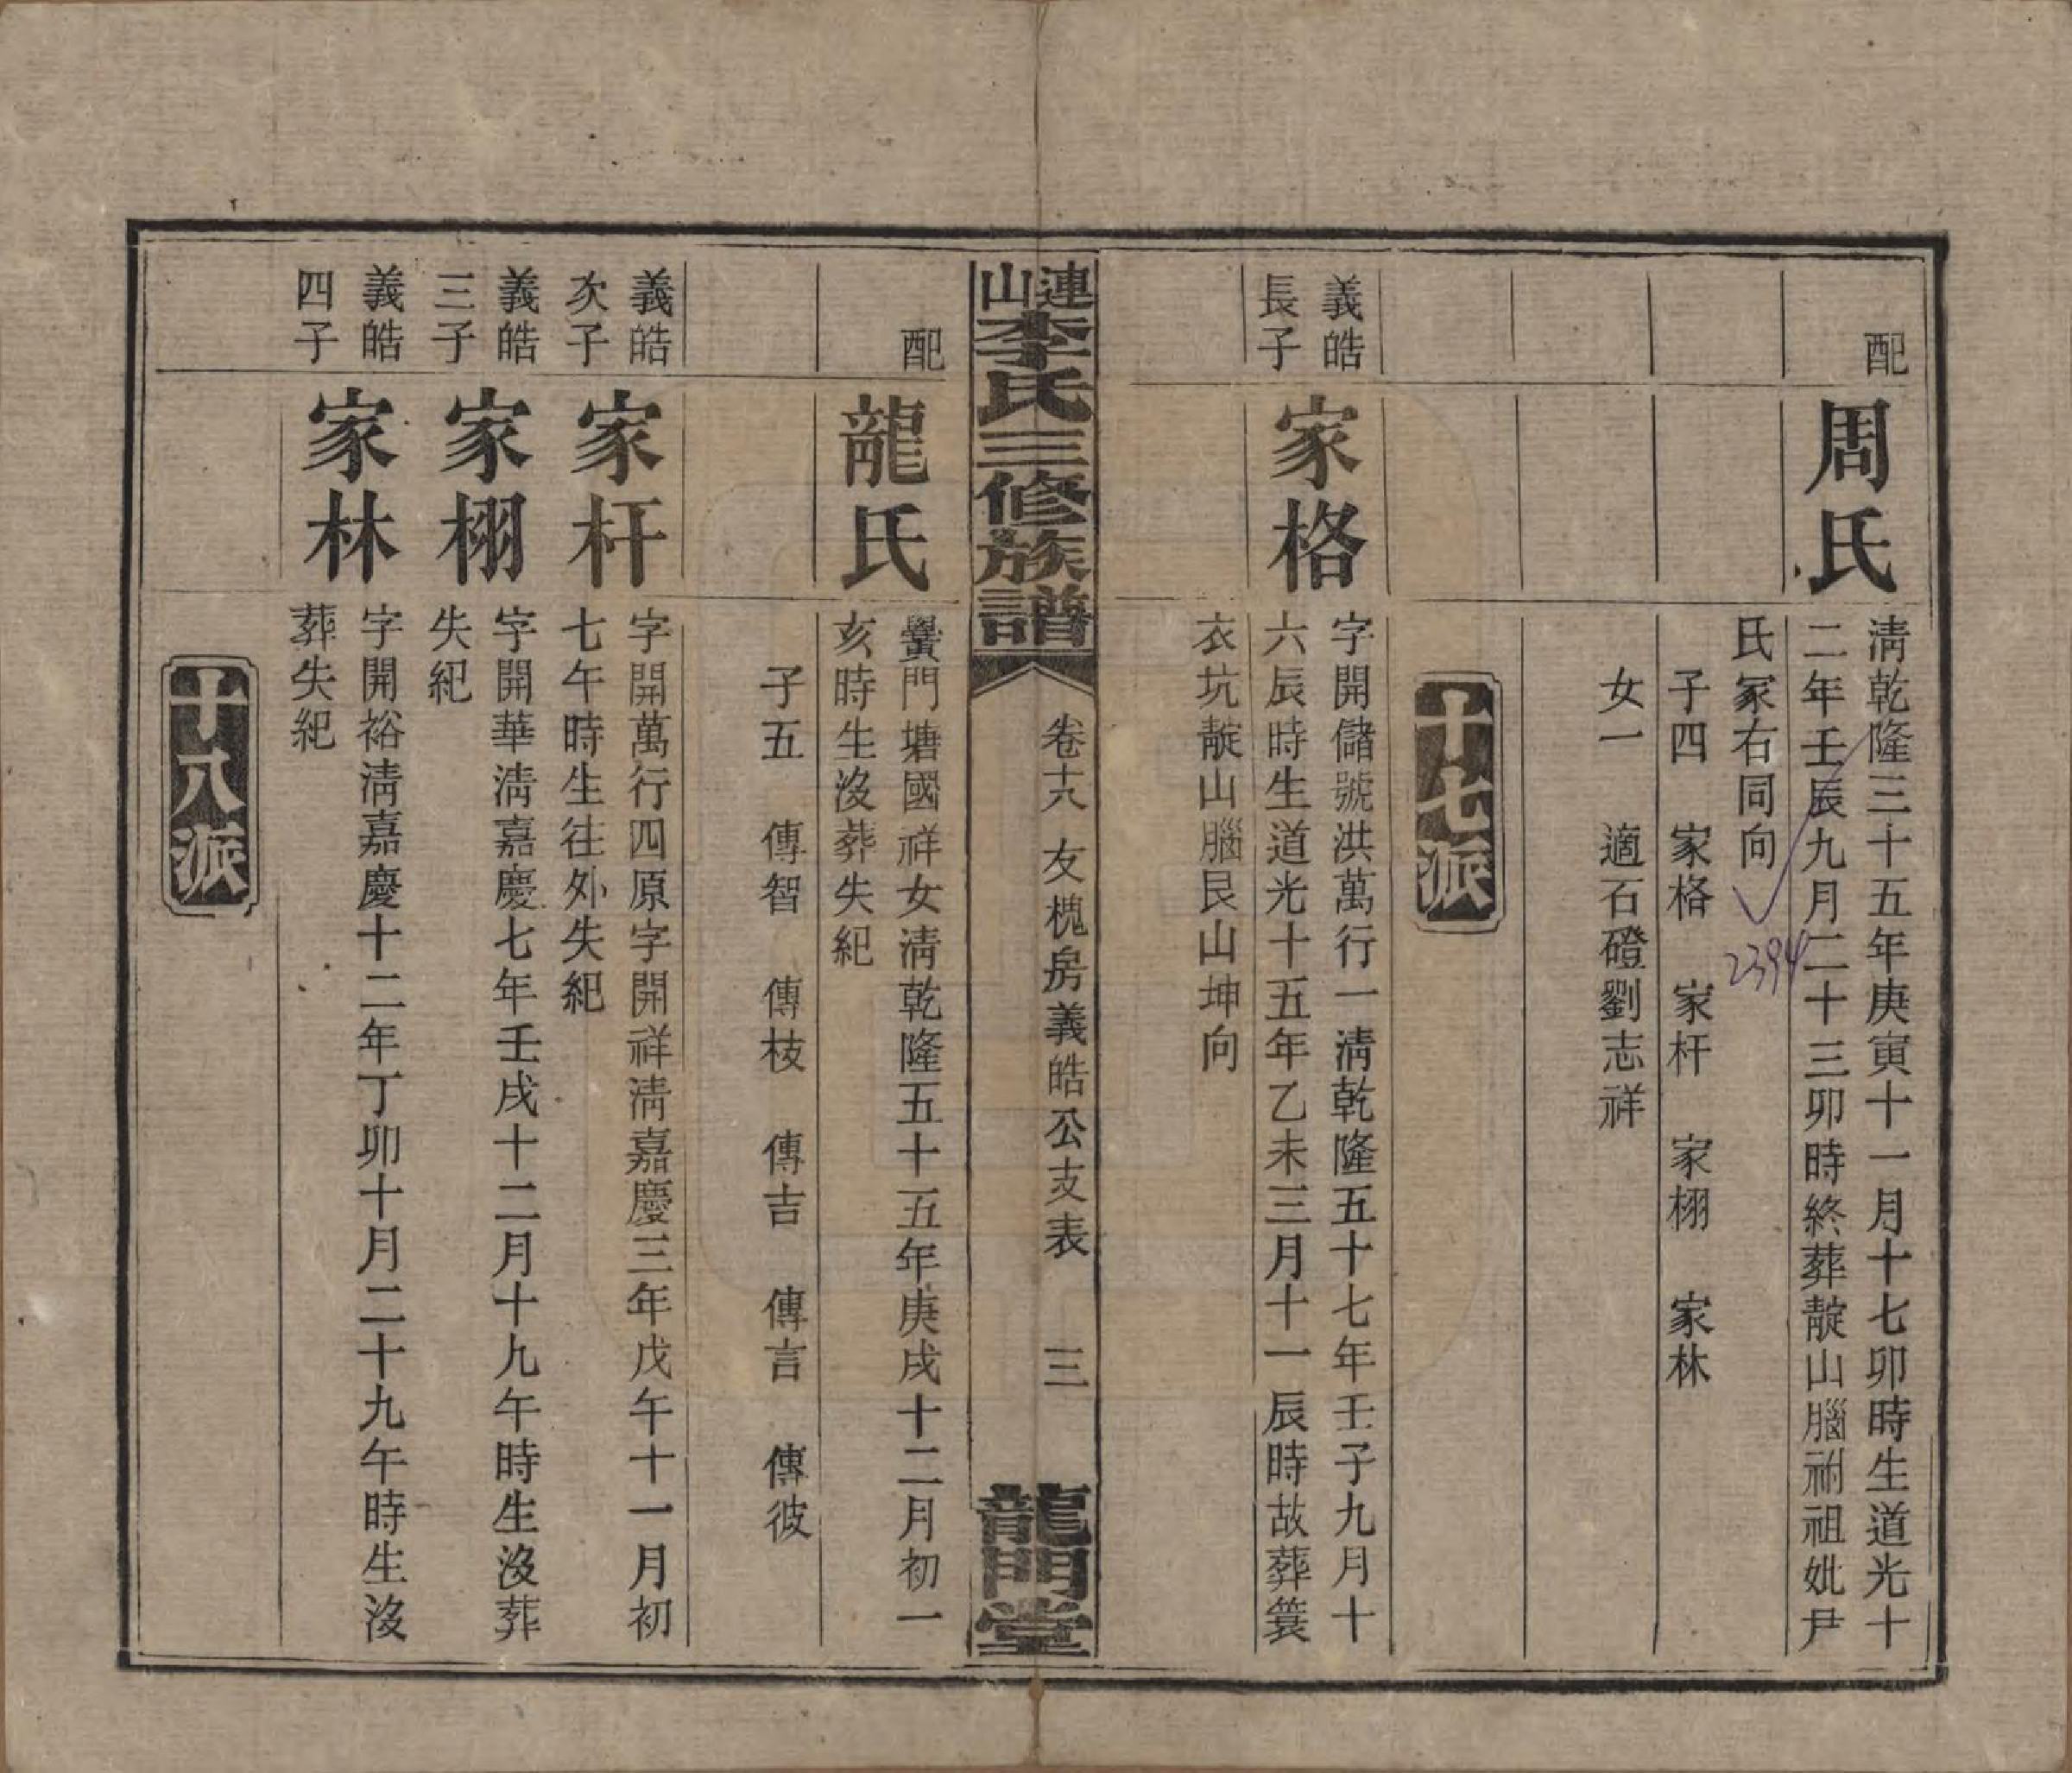 配
周氏
淸乾隆三十五年庚寅十一月十七卯時生道光十
二年壬辰九月二十三卯時終葬靛山腦祔祖妣尹
氏冢右同向
2394
子四 家格 家杆 家栩 家林
女一 適石磴劉志祥
十七派
義皓
長子
家格
字開儲號洪萬行一淸乾隆五十七年壬子九月十
六辰時生道光十五年乙未三月十一辰時故葬簑
衣坑靛山腦艮山坤向
連山李氏三修族譜
卷十八 友槐房義皓公支表 三
龍門堂
配
龍氏
黌門塘國祥女淸乾隆五十五年庚戌十二月初一
亥時生沒葬失紀
子五 傳智 傳枝 傳吉 傳言 傳彼
義皓
次子
家杆
字開萬行四原字開祥淸嘉慶三年戊午十一月初
七午時生往外失紀
義皓
三子
家栩
字開華淸嘉慶七年壬戌十二月十九午時生沒葬
失紀
義皓
四子
家林
字開裕淸嘉慶十二年丁卯十月二十九午時生沒
葬失紀
十八派